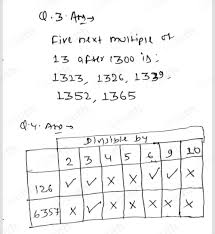 Q.3. Ans→
Five next multiple of
13 after 1300 is:
1313, 1326, 1339,
1352, 1365
Q.4. Ans→
Divisible by
2 3 4 5 6 9 10
126 ✓ ✓ X X ✓ ✓ X
6357 X ✓ X X X X X